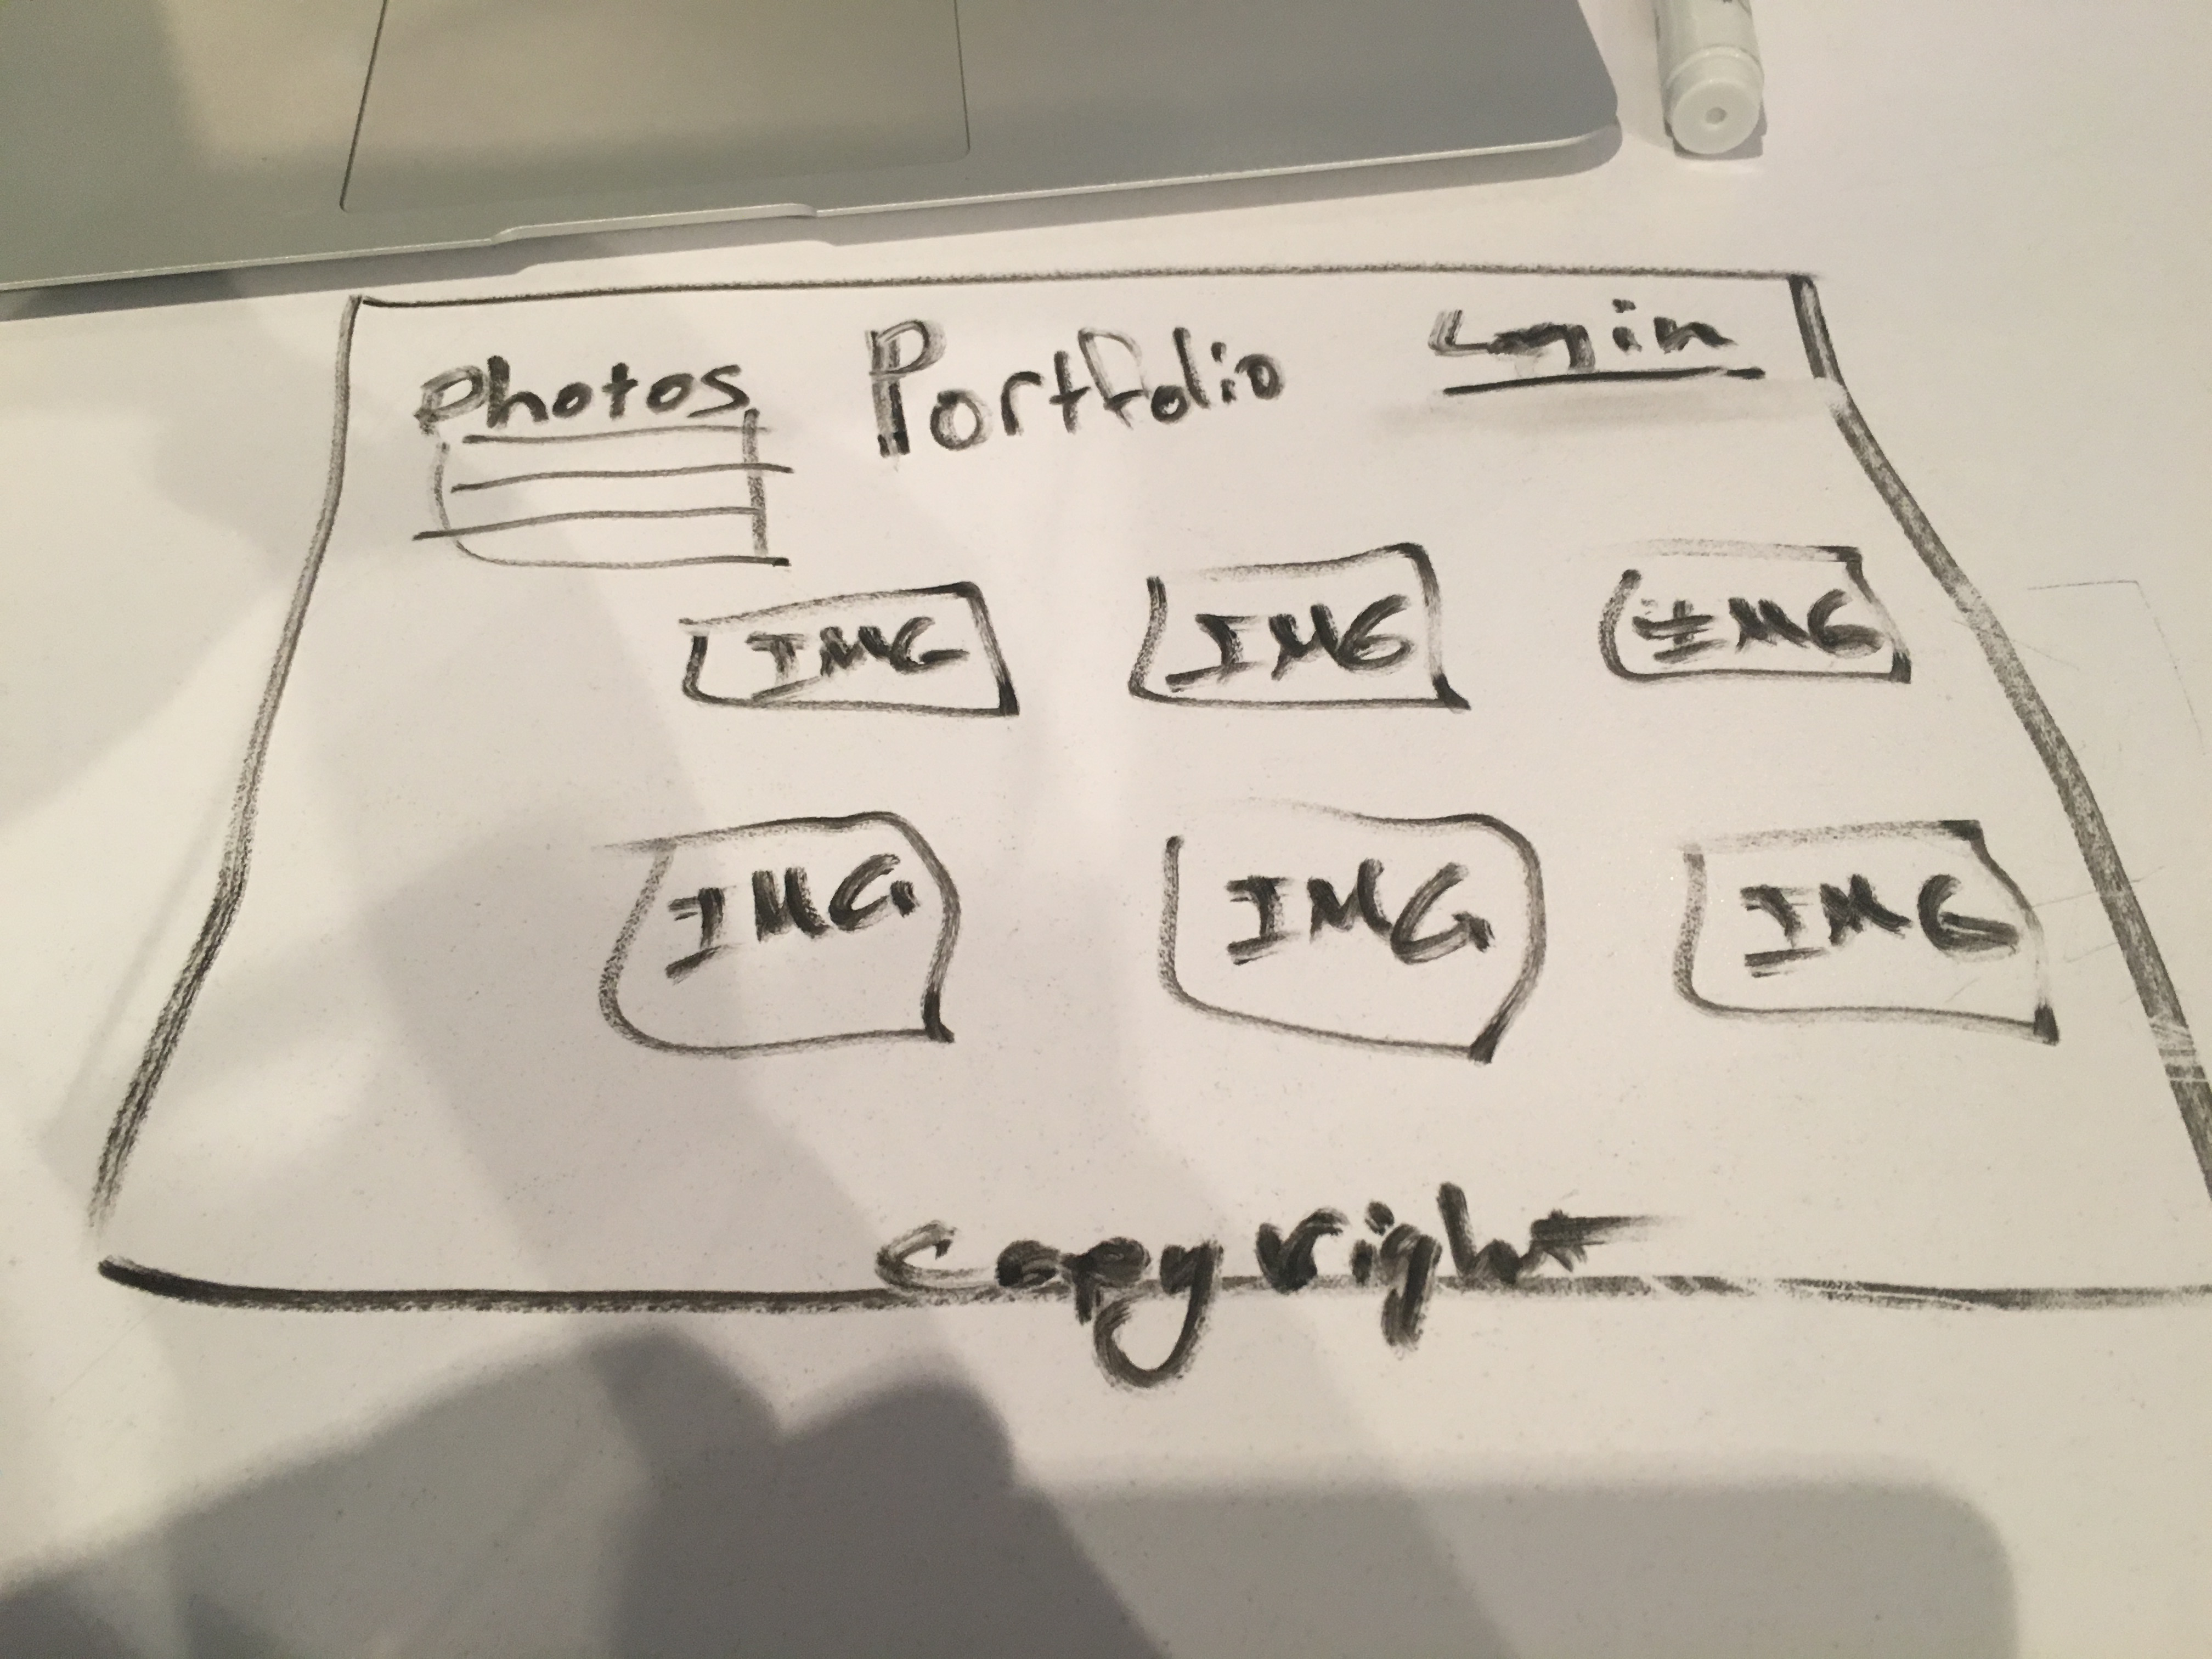 Photos Portfolio Login
IMG IMG IMG
IMG IMG IMG
Copyright